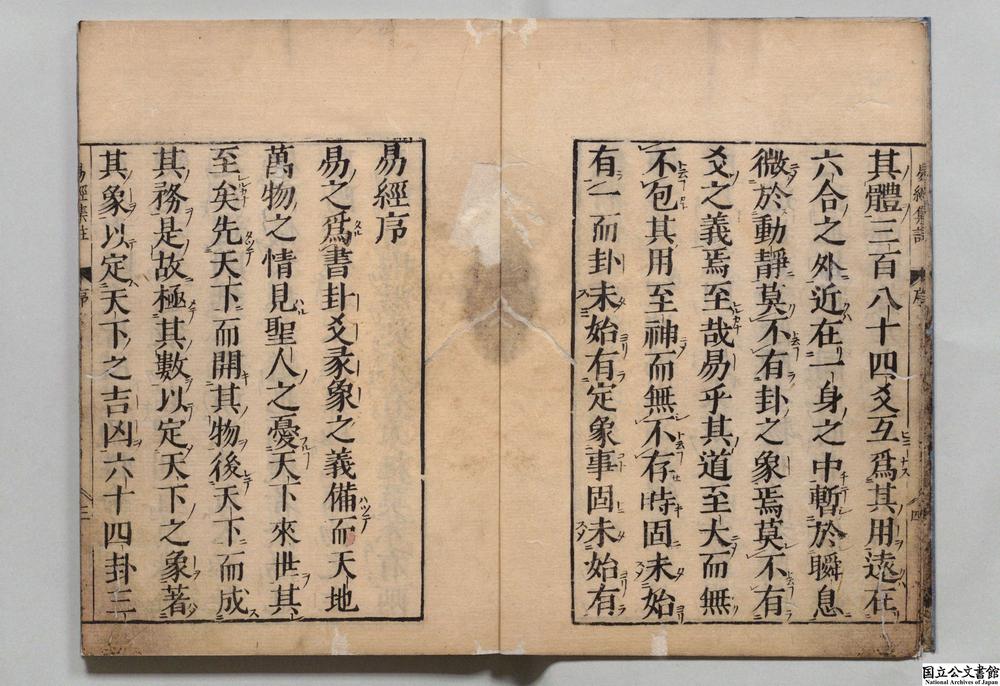 易經集註 序 四
其體三百八十四爻互爲其用遠在
六合之外近在一身之中暫於瞬息
微於動靜莫不有卦之象焉莫不有
爻之義焉至哉易乎其道至大而無
不包其用至神而無不存時固未始
有一而卦未始有定象事固未始有
易經序
易之爲書卦爻彖象之義備而天地
萬物之情見聖人之憂天下來世其
至矣先天下而開其物後天下而成
其務是故極其數以定天下之象著
其象以定天下之吉凶六十四卦三
易經集註 序 三
国立公文書館
National Archives of Japan